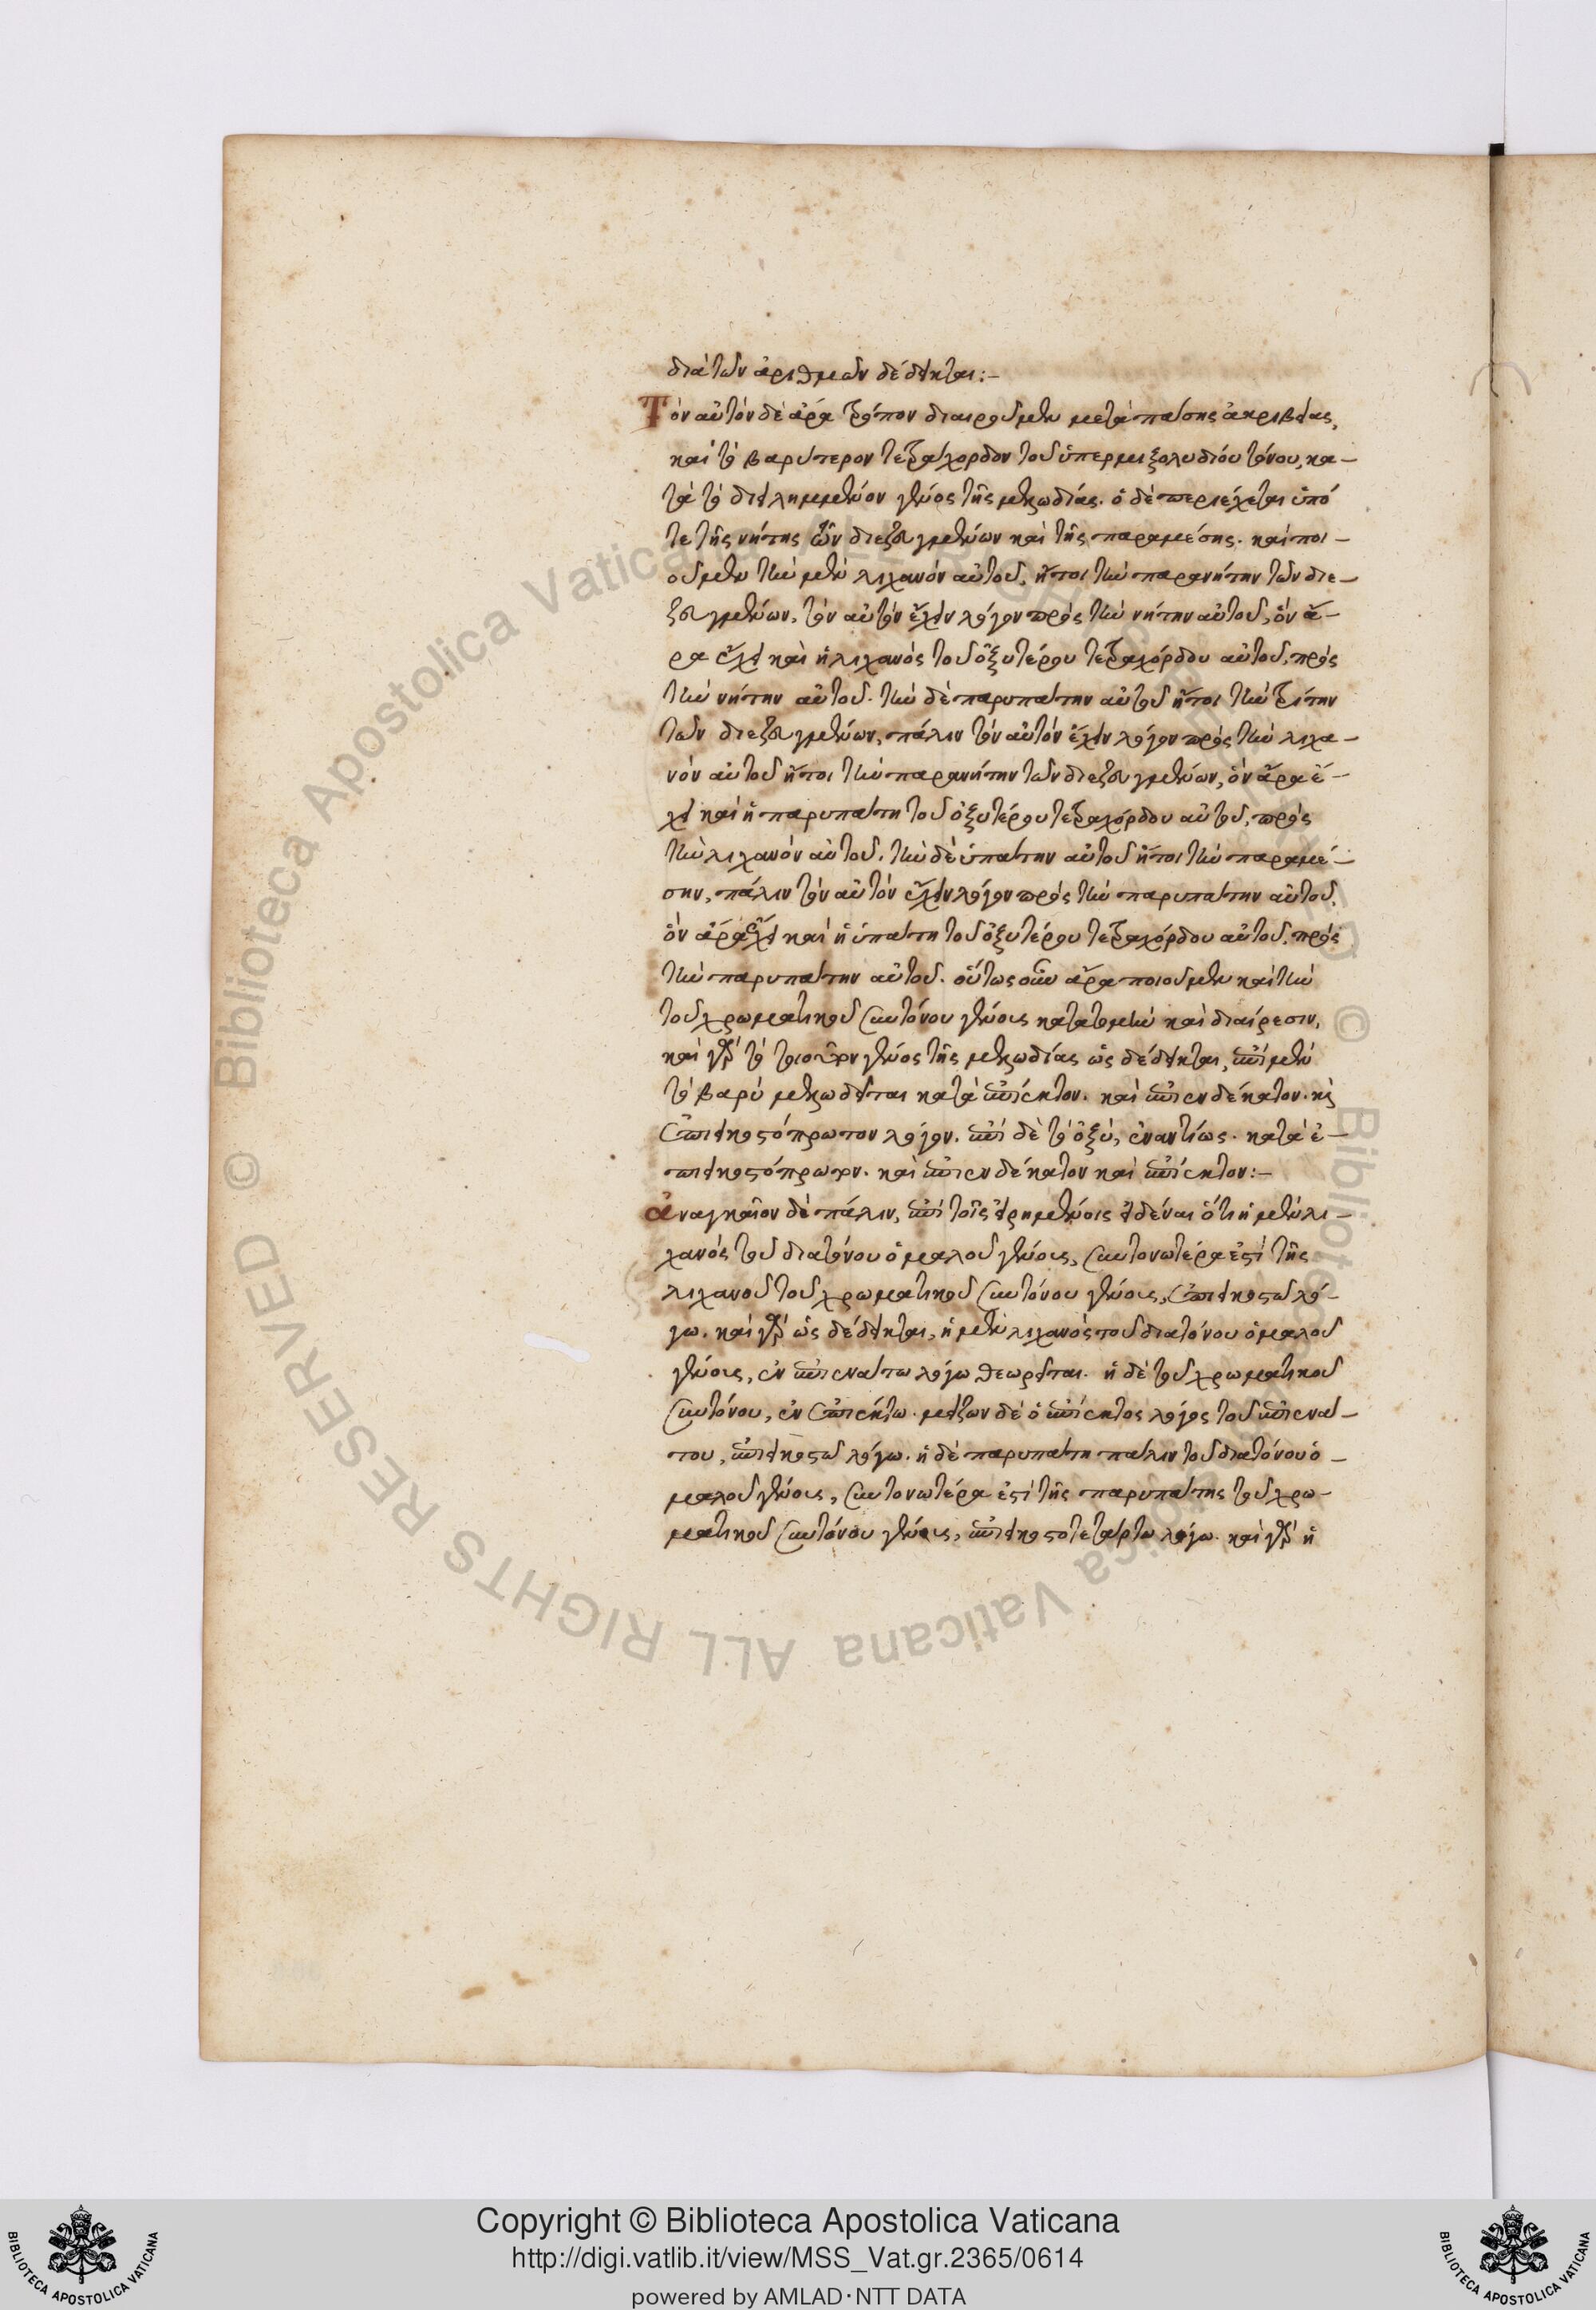 διὰ τῶν ἀριθμῶν δέδεικται:–
Τὸν αὐτὸν δὲ ἄρα τρόπον διαιροῦμεν μετὰ πάσης ἀκριβείας,
καὶ τὸ βαρύτερον τετράχορδον τοῦ ὑπερμιξολυδίου τόνου, κα–
τὰ τὸ διειλημμένον γένος τῆς μελῳδίας. ὃ δὲ περιέχεται ὑπό
τε τῆς νήτης τῶν διεζευγμένων καὶ τῆς παραμέσης. καὶ ποι–
οῦμεν τὴν μὲν λιχανὸν αὐτοῦ, ἤτοι τὴν παρανήτην τῶν διε–
ζευγμένων, τὸν αὐτὸν ἔχειν λόγον πρὸς τὴν νήτην αὐτοῦ, ὃν ἄ–
ρα ἔχει καὶ ἡ λιχανὸς τοῦ ὀξυτέρου τετραχόρδου αὐτοῦ, πρὸς
τὴν νήτην αὐτοῦ. τὴν δὲ παρυπάτην αὐτοῦ ἤτοι τὴν τρίτην
τῶν διεζευγμένων, πάλιν τὸν αὐτὸν ἔχειν λόγον πρὸς τὴν λιχα–
νὸν αὐτοῦ ἤτοι τὴν παρανήτην τῶν διεζευγμένων, ὃν ἄρα ἔ–
χει καὶ ἡ παρυπάτη τοῦ ὀξυτέρου τετραχόρδου αὐτοῦ, πρὸς
τὴν λιχανὸν αὐτοῦ. τὴν δὲ ὑπάτην αὐτοῦ ἤτοι τὴν παραμέ–
σην, πάλιν τὸν αὐτὸν ἔχειν λόγον πρὸς τὴν παρυπάτην αὐτοῦ,
ὃν ἄρα ἔχει καὶ ἡ ὑπάτη τοῦ ὀξυτέρου τετραχόρδου αὐτοῦ, πρὸς
τὴν παρυπάτην αὐτοῦ. οὕτως οὖν ἄρα ποιοῦμεν καὶ τὴν
τοῦ χρωματικοῦ συντόνου γένους κατατομὴν καὶ διαίρεσιν,
καὶ γὰρ τὸ τοιοῦτον γένος τῆς μελῳδίας ὡς δέδεικται, ἐπὶ μὲν
τὸ βαρὺ μελῳδεῖται κατὰ ἐπίεκτον. καὶ ἐπιενδέκατον. καὶ
ἐπιεικοστόπρωτον λόγον. ἐπὶ δὲ τὸ ὀξύ, ἐναντίως. κατὰ ἐ–
πιεικοστόπρωτον. καὶ ἐπιενδέκατον καὶ ἐπίεκτον:–
ἀναγκαῖον δὲ πάλιν, ἐπὶ τοῖς εἰρημένοις εἰδέναι ὅτι ἡ μὲν λι–
χανὸς τοῦ διατόνου ὁμαλοῦ γένους, συντονωτέρα ἐστὶ τῆς
λιχανοῦ τοῦ χρωματικοῦ συντόνου γένους, ἐπιεικοστῷ λό–
γω. καὶ γὰρ ὡς δέδεικται, ἡ μὲν λιχανὸς τοῦ διατόνου ὁμαλοῦ
γένους, ἐν ἐπιενάτω λόγω θεωρεῖται. ἡ δὲ τοῦ χρωματικοῦ
συντόνου, ἐν ἐπιέκτω. μείζων δὲ ὁ ἐπίεκτος λόγος τοῦ ἐπιενά–
του, ἐπιεικοστῷ λόγω. ἡ δὲ παρυπάτη πάλιν τοῦ διατόνου ὁ–
μαλοῦ γένους, συντονωτέρα ἐστὶ τῆς παρυπάτης τοῦ χρω–
ματικοῦ συντόνου γένους, ἐπιεικοστοτετάρτω λόγω. καὶ γὰρ ἡ
Copyright © Biblioteca Apostolica Vaticana
http://digi.vatlib.it/view/MSS_Vat.gr.2365/0614
powered by AMLAD·NTT DATA
BIBLIOTECA APOSTOLICA VATICANA
BIBLIOTECA APOSTOLICA VATICANA
© Biblioteca Apostolica Vaticana ALL RIGHTS RESERVED © Biblioteca Apostolica Vaticana ALL RIGHTS RESERVED